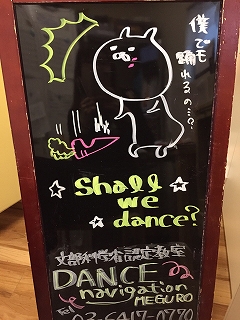 僕でも
踊れるの…?
Shall
we
dance?
文部科学省認定教室
DANCE
navigation
MEGURO
Tel 03-6417-0770